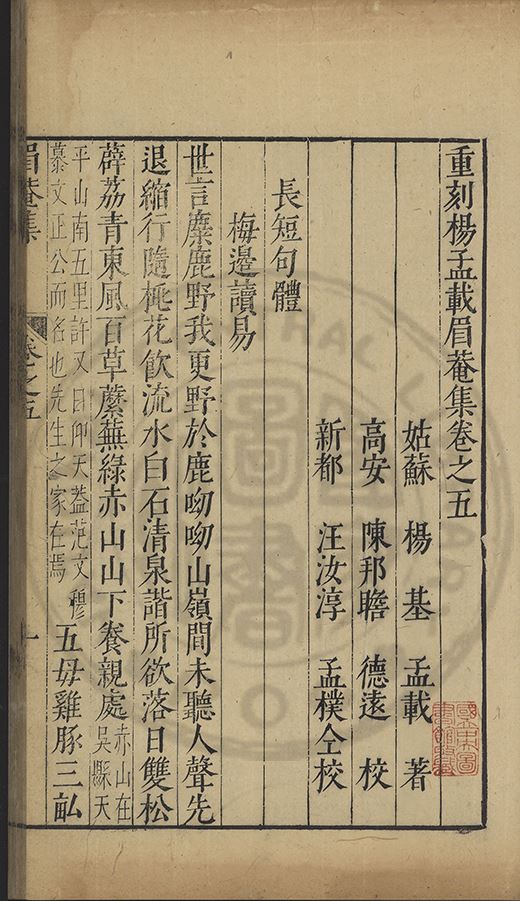 重刻楊孟載眉菴集卷之五
姑蘇 楊基 孟載 著
高安 陳邦瞻 德遠 校
新都 汪汝淳 孟樸仝校
長短句體
梅邊讀易
世言麋鹿野我更野於鹿呦呦山嶺間未聽人聲先
退縮行隨桃花飲流水白石清泉諧所欲落日雙松
薜荔青東風百草蘼蕪綠赤山山下養親處赤山在吳縣天
平山南五里許又曰仰天葢范文穆慕文正公而名也先生之家在焉五母雞豚三畝
眉菴集 卷之五 一
國立中央圖書館收藏